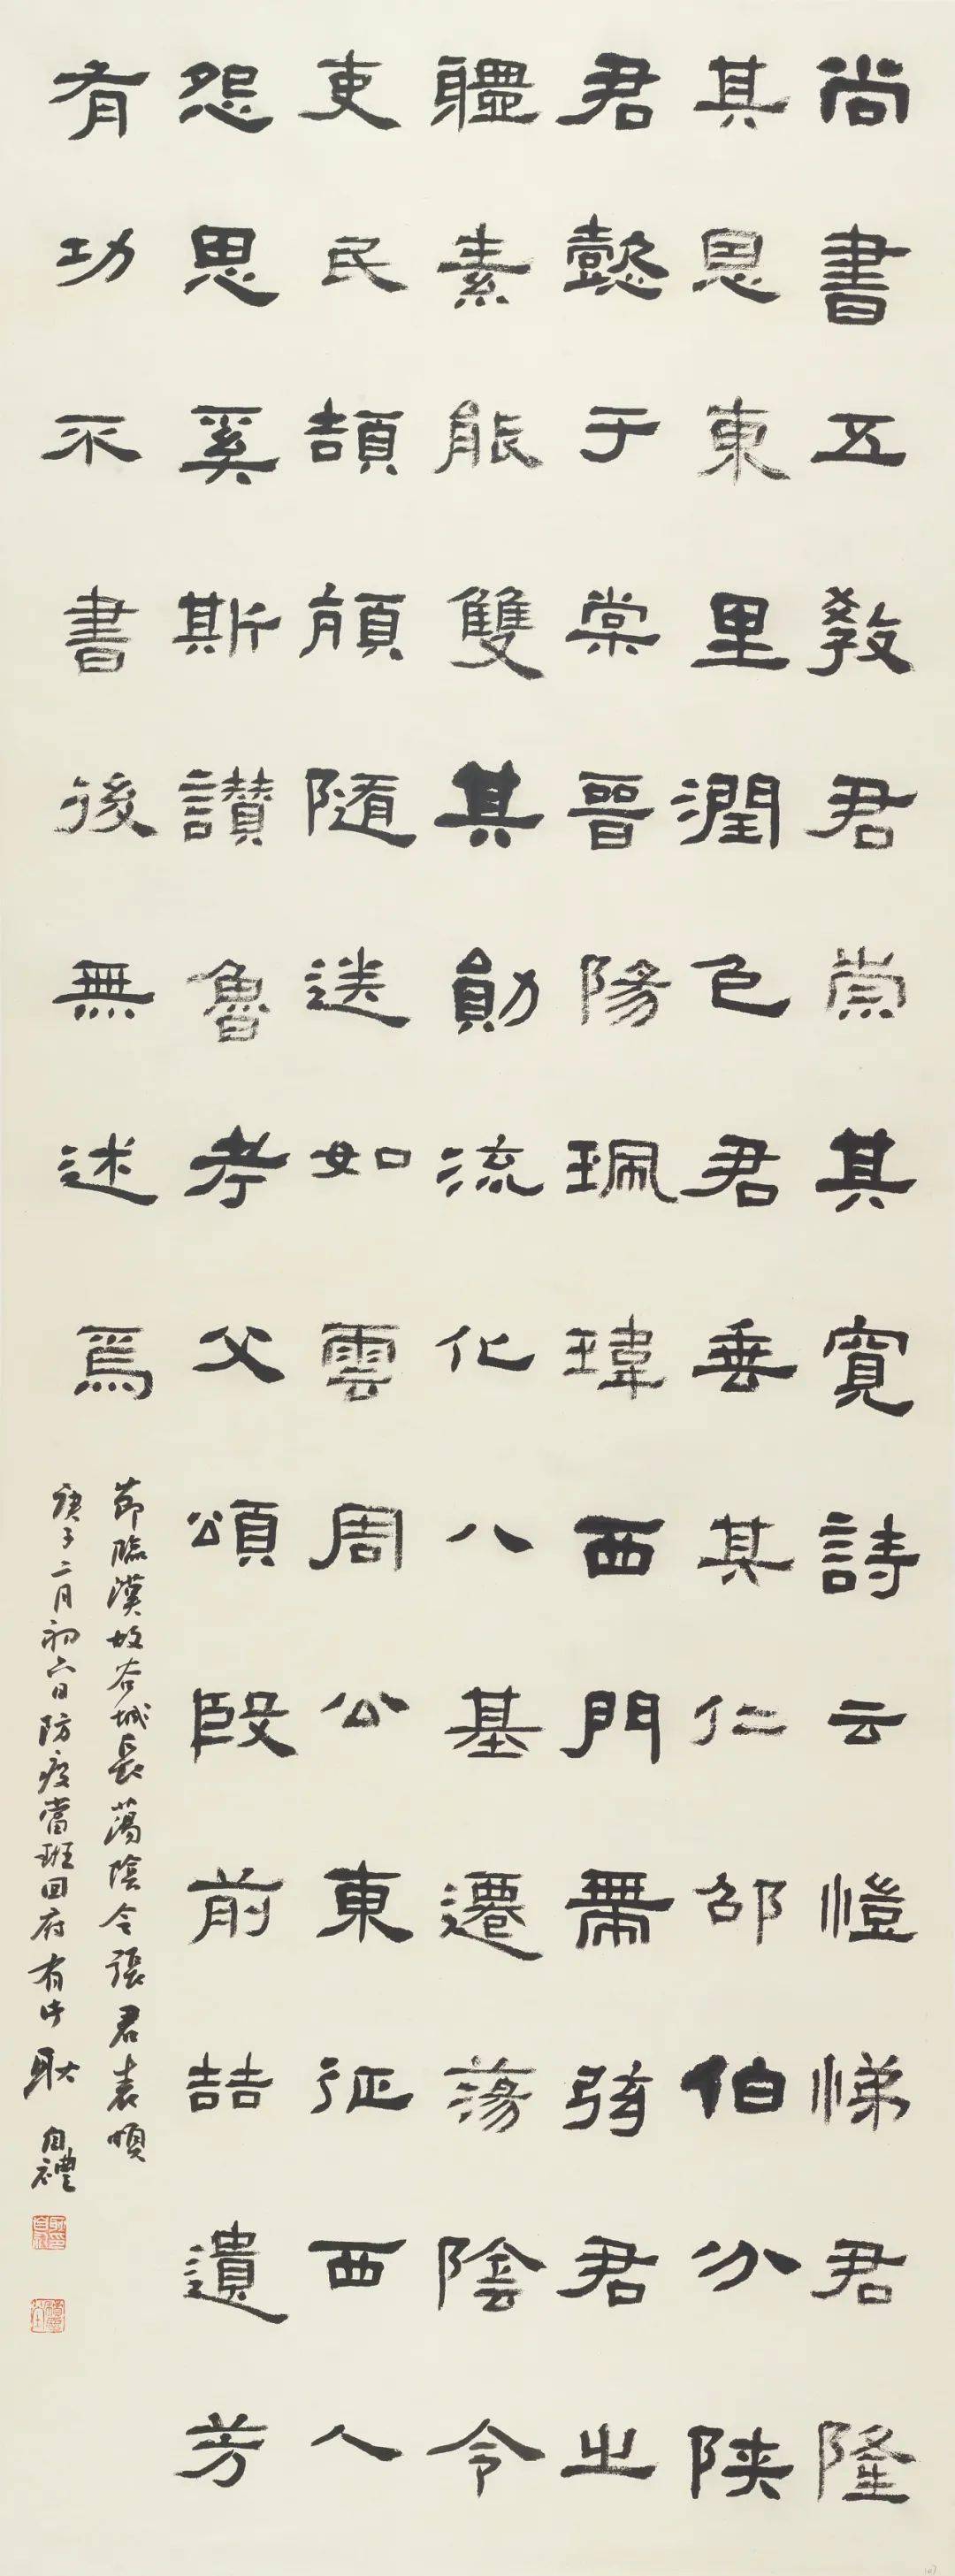 尚書五教君崇其寬詩云愷悌君隆
其恩東里潤色君垂其仁邵伯分陝
君懿于棠晉陽珮瑋西門帶弦君之
體素能雙其勛流化八基遷蕩陰令
吏民頡頏隨送如雲周公東征西人
怨思奚斯讚魯考父頌殷前喆遺芳
有功不書後無述焉
節臨漢故谷城長蕩陰令張君表頌
庚子二月初六日防疫當班回府有中耿自禮